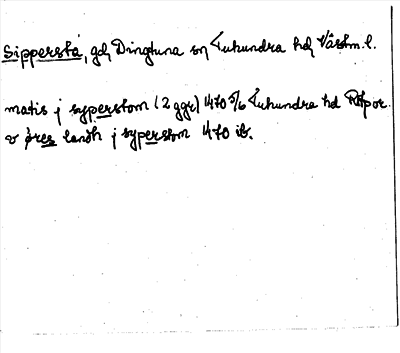 Sipperstá, gd, Dingtuna sn Tuhundra hd, Västm. l.
matis j syperstom (2 ggr) 1470 5/6 Tuhundra hd por.
v öres landh j syperstom 1470 ib.